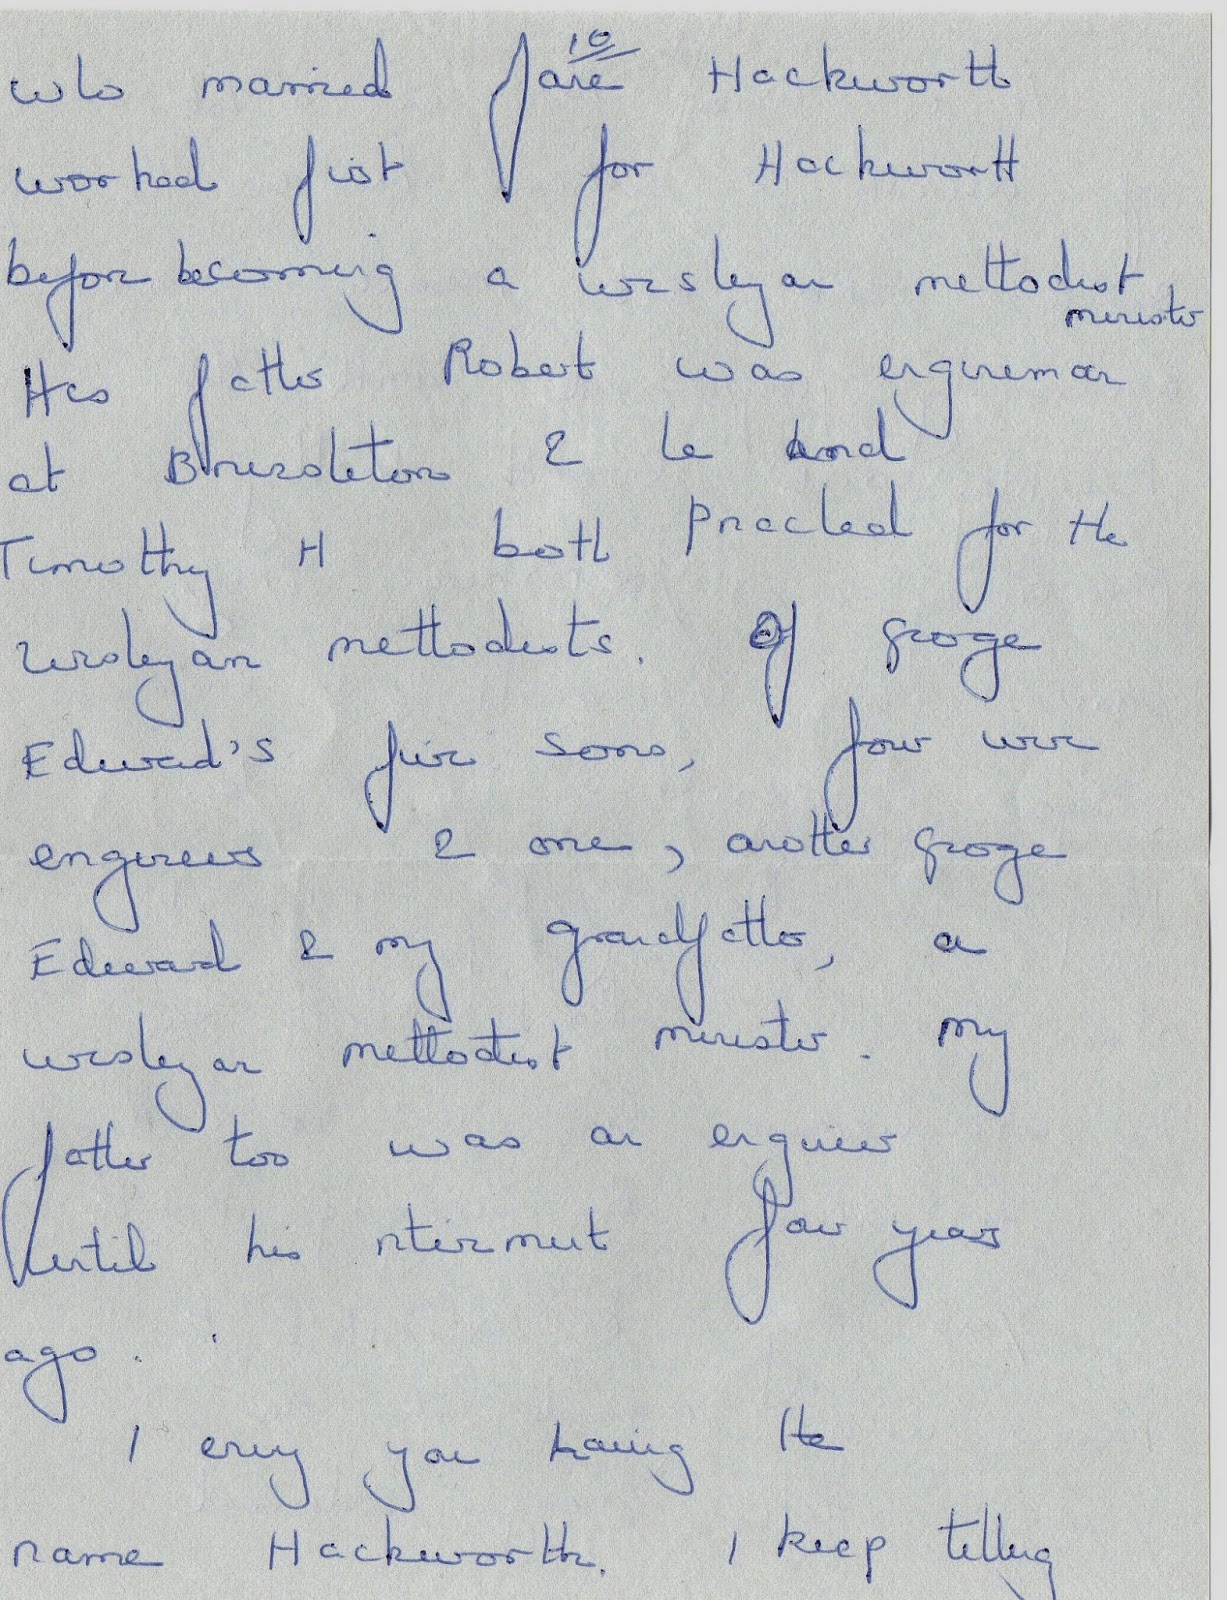 10
who married Jane Hackworth
worked first for Hackworth
before becoming a wesleyan methodist
minister
His father Robert was engineman
at Brusselton & he and
Timothy H both preached for the
wesleyan methodists. Of George
Edward's five sons, four were
engineers & one, another George
Edward & my grandfather, a
wesleyan methodist minister. My
father too was an engineer
until his retirement four years
ago.
I envy you having the
name Hackworth. I keep telling